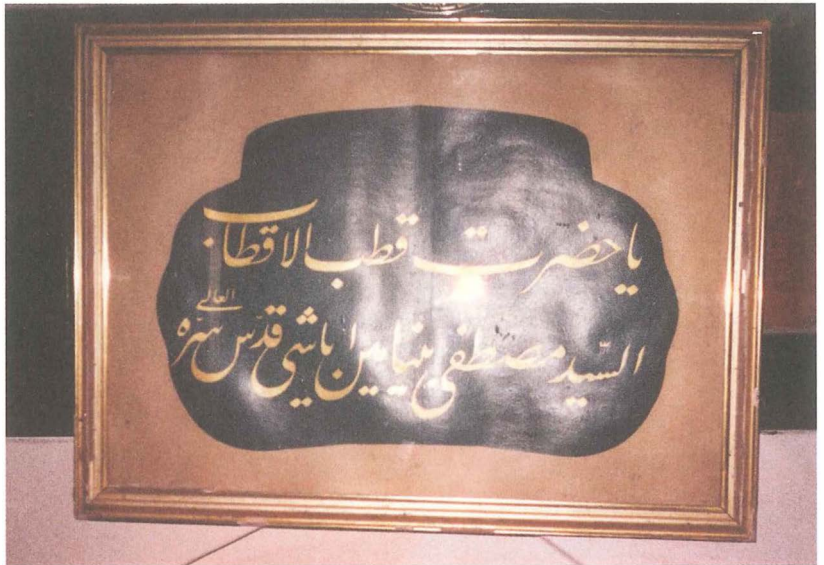 يا حضرت قطب الاقطاب
السيّد مصطفى بنيامين اياشى قدّس سرّه العالى